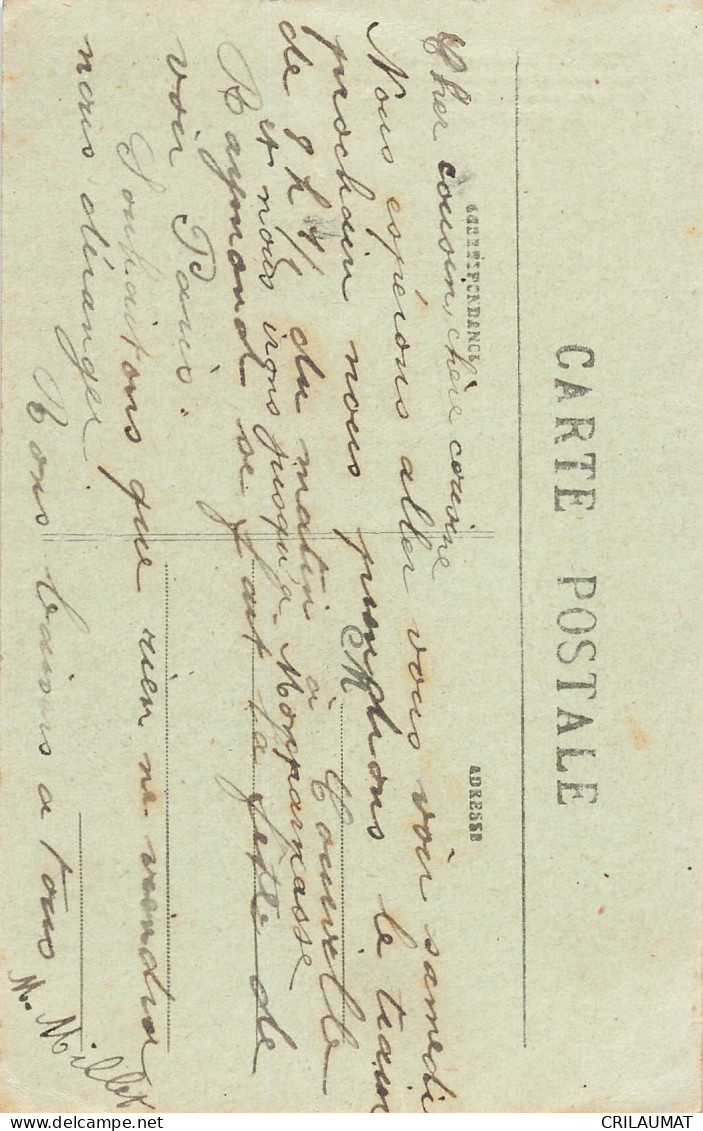 CARTE POSTALE
CORRESPONDANCE
ADRESSE
Cher cousin, chère cousine
Nous espérons aller vous voir samedi
prochain nous prendrons le train
de 8 h du matin à Courville
et nous irons jusqu'a Monparnasse
Raymond se fait la fete de
voir Paris.
Souhaitons que rien ne viendra
nous déranger.
Bons baisers a tous
M. Millet
CRILAUMAT